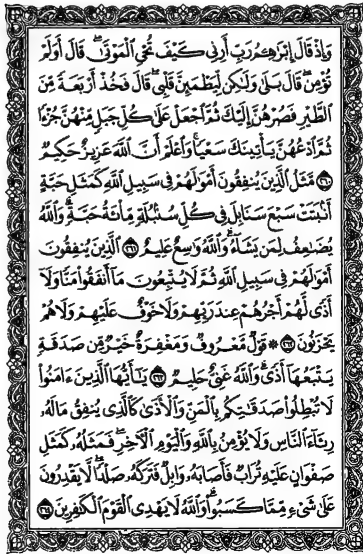 وَإِذْ قَالَ إِبْرَٰهِـۧمُ رَبِّ أَرِنِى كَيْفَ تُحْىِ ٱلْمَوْتَىٰ ۖ قَالَ أَوَلَمْ
تُؤْمِن ۖ قَالَ بَلَىٰ وَلَٰكِن لِّيَطْمَئِنَّ قَلْبِى ۖ قَالَ فَخُذْ أَرْبَعَةً مِّنَ
ٱلطَّيْرِ فَصُرْهُنَّ إِلَيْكَ ثُمَّ ٱجْعَلْ عَلَىٰ كُلِّ جَبَلٍ مِّنْهُنَّ جُزْءًا
ثُمَّ ٱدْعُهُنَّ يَأْتِينَكَ سَعْيًا ۚ وَٱعْلَمْ أَنَّ ٱللَّهَ عَزِيزٌ حَكِيمٌ
٢٦٠ مَّثَلُ ٱلَّذِينَ يُنفِقُونَ أَمْوَٰلَهُمْ فِى سَبِيلِ ٱللَّهِ كَمَثَلِ حَبَّةٍ
أَنۢبَتَتْ سَبْعَ سَنَابِلَ فِى كُلِّ سُنۢبُلَةٍ مِّا۟ئَةُ حَبَّةٍ ۗ وَٱللَّهُ
يُضَٰعِفُ لِمَن يَشَآءُ ۗ وَٱللَّهُ وَٰسِعٌ عَلِيمٌ ٢٦١ ٱلَّذِينَ يُنفِقُونَ
أَمْوَٰلَهُمْ فِى سَبِيلِ ٱللَّهِ ثُمَّ لَا يُتْبِعُونَ مَآ أَنفَقُوا۟ مَنًّا وَلَآ
أَذًى ۙ لَّهُمْ أَجْرُهُمْ عِندَ رَبِّهِمْ وَلَا خَوْفٌ عَلَيْهِمْ وَلَا هُمْ
يَحْزَنُونَ ٢٦٢ ۞ قَوْلٌ مَّعْرُوفٌ وَمَغْفِرَةٌ خَيْرٌ مِّن صَدَقَةٍ
يَتْبَعُهَآ أَذًى ۗ وَٱللَّهُ غَنِىٌّ حَلِيمٌ ٢٦٣ يَٰٓأَيُّهَا ٱلَّذِينَ ءَامَنُوا۟
لَا تُبْطِلُوا۟ صَدَقَٰتِكُم بِٱلْمَنِّ وَٱلْأَذَىٰ كَٱلَّذِى يُنفِقُ مَالَهُۥ
رِئَآءَ ٱلنَّاسِ وَلَا يُؤْمِنُ بِٱللَّهِ وَٱلْيَوْمِ ٱلْءَاخِرِ ۖ فَمَثَلُهُۥ كَمَثَلِ
صَفْوَانٍ عَلَيْهِ تُرَابٌ فَأَصَابَهُۥ وَابِلٌ فَتَرَكَهُۥ صَلْدًا ۖ لَّا يَقْدِرُونَ
عَلَىٰ شَىْءٍ مِّمَّا كَسَبُوا۟ ۗ وَٱللَّهُ لَا يَهْدِى ٱلْقَوْمَ ٱلْكَٰفِرِينَ ٢٦٤